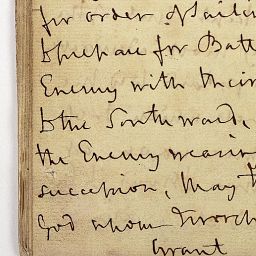 for order of Sailin
to prepare for Batt
Enemy with their
to the Southward,
the Enemy wearin
succession, May th
God whom I worsh
Grant